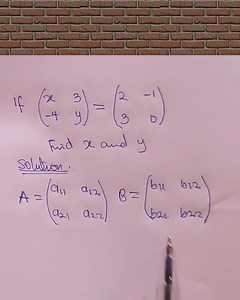 If (x 3 -4 y) = (2 -1 3 0)
Find x and y
Solution.
A = (a11 a12 a21 a22) B = (b11 b12 b21 b22)